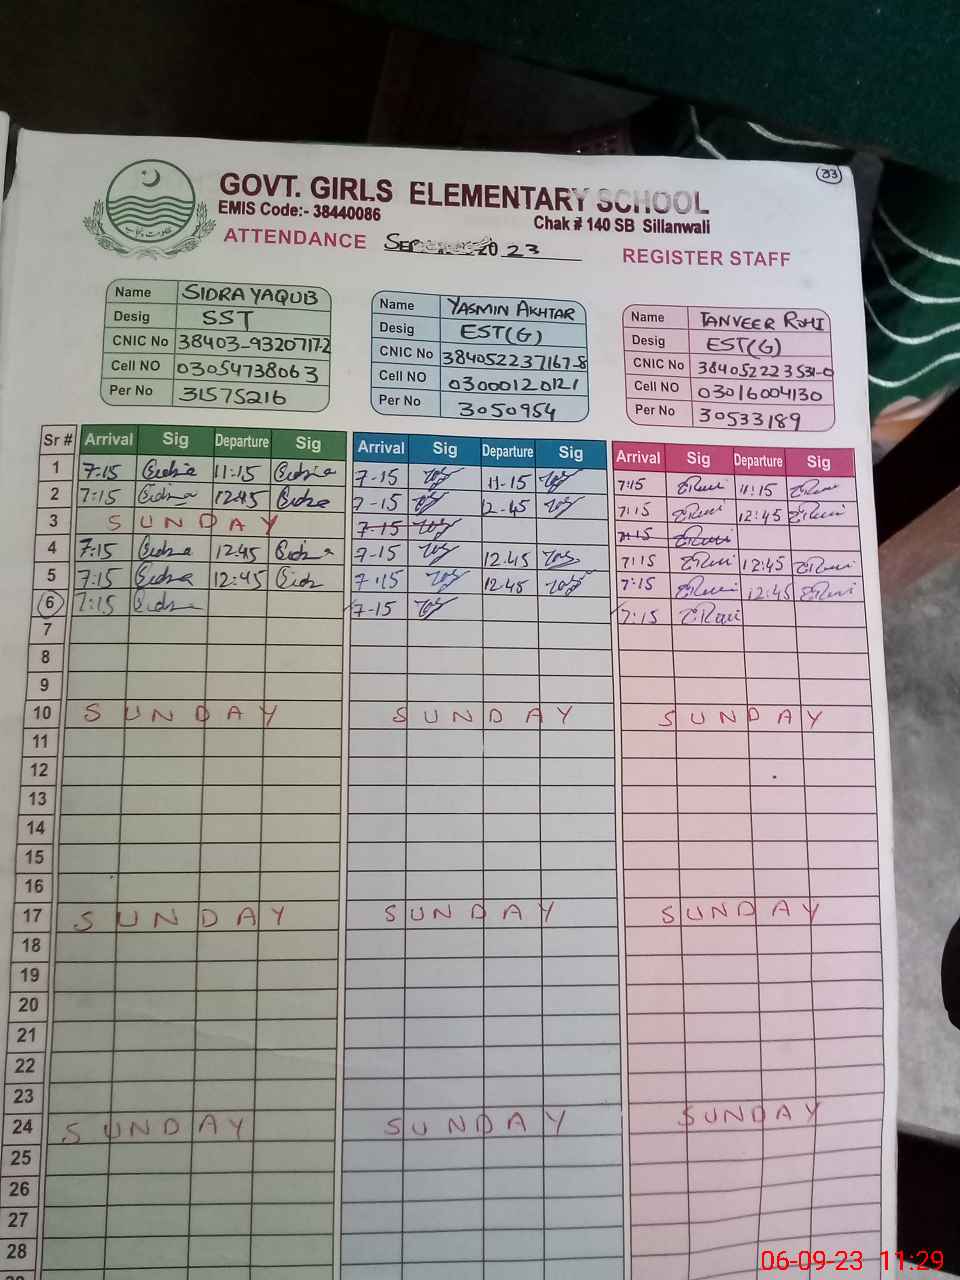 33
GOVT. GIRLS ELEMENTARY SCHOOL
EMIS Code:- 38440086 Chak # 140 SB Sillanwali
ATTENDANCE 20 23 REGISTER STAFF
Name SIDRA YAQUB
Desig SST
CNIC No 38403-93207117-2
Cell NO 03054738063
Per No 31575216
Name YASMIN AKHTAR
Desig EST(G)
CNIC No 384052237167-8
Cell NO 03000120121
Per No 3050954
Name TANVEER RUHI
Desig EST(G)
CNIC No 384052223531-0
Cell NO 03016004130
Per No 30533189
Sr # Arrival Sig Departure Sig Arrival Sig Departure Sig Arrival Sig Departure Sig
1 7:15 11:15 7-15 11-15 7:15 11:15
2 7:15 12:45 7-15 12-45 7:15 12:45
3 SUNDAY 7-15 7:15
4 7:15 12:45 7-15 12.45 7:15 12:45
5 7:15 12:45 7-15 12:45 7:15 12:45
6 7:15 7-15 7:15
7
8
9
10 SUNDAY SUNDAY SUNDAY
11
12
13
14
15
16
17 SUNDAY SUNDAY SUNDAY
18
19
20
21
22
23
24 SUNDAY SUNDAY SUNDAY
25
26
27
28
06-09-23 11:29